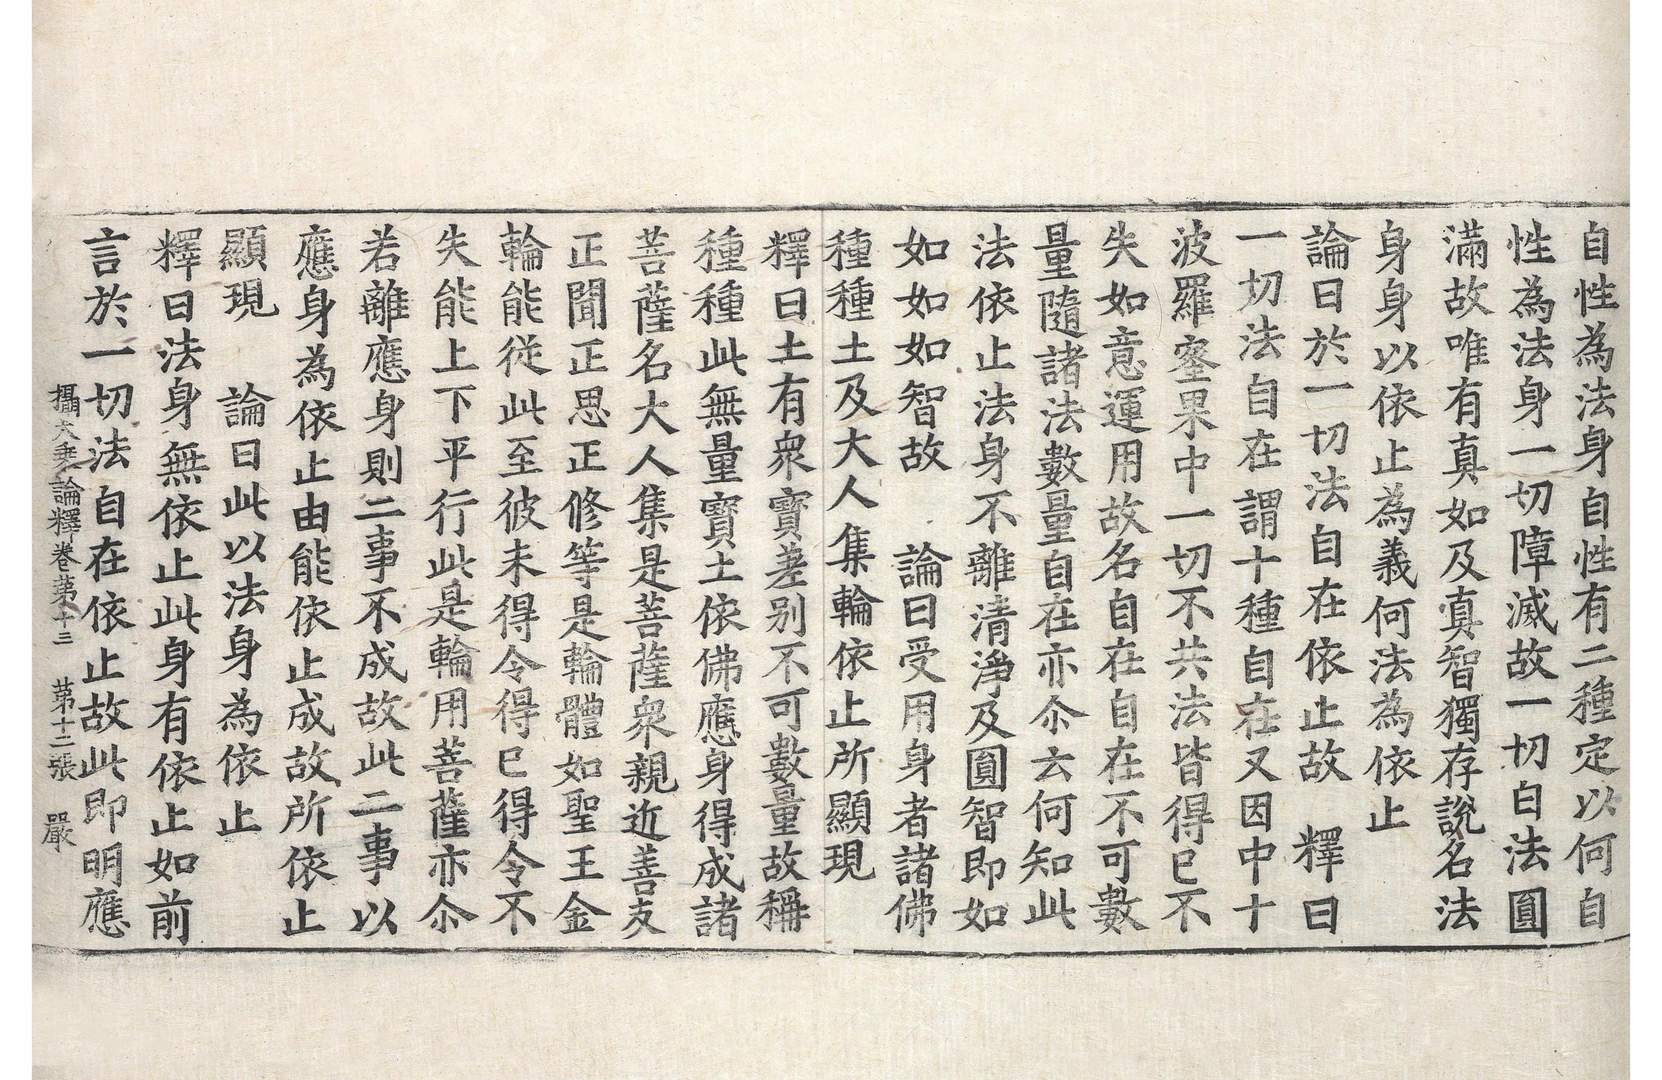 自性為法身自性有二種定以何自
性為法身一切障滅故一切白法圓
滿故唯有真如及真智獨存說名法
身身以依止為義何法為依止
論曰於一切法自在依止故　釋曰
一切法自在謂十種自在又因中十
波羅蜜果中一切不共法皆得已不
失如意運用故名自在自在不可數
量隨諸法數量自在亦尒云何知此
法依止法身不離清淨及圓智即如
如如如智故　論曰受用身者諸佛
種種土及大人集輪依止所顯現
釋曰土有衆寶差別不可數量故稱
種種此無量寶土依佛應身得成諸
菩薩名大人集是菩薩衆親近善友
正聞正思正修等是輪體如聖王金
輪能從此至彼未得令得已得令不
失能上下平行此是輪用菩薩亦尒
若離應身則二事不成故此二事以
應身為依止由能依止成故所依止
顯現　論曰此以法身為依止
釋曰法身無依止此身有依止如前
言於一切法自在依止故此即明應
攝大乘論釋卷苐十三　苐十二張　嚴